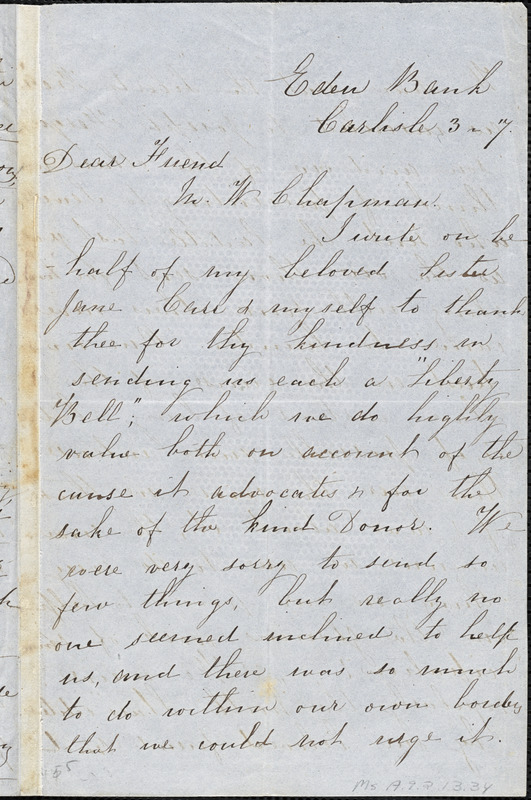 Eden Bank
Carlisle 3 - 7.
Dear Friend
M. W Chapman.
I write on be-
half of my beloved Sister
Jane Carr & myself to thank
thee for thy kindness in
sending us each a "Liberty
Bell"; which we do highly
value both on account of the
cause it advocates & for the
sake of the kind Donor. We
were very sorry to send so
few things, but really no
one seemed inclined to help
us, and there was so much
to do within our own borders
that we could not urge it.
Ms A.9.2.13.34